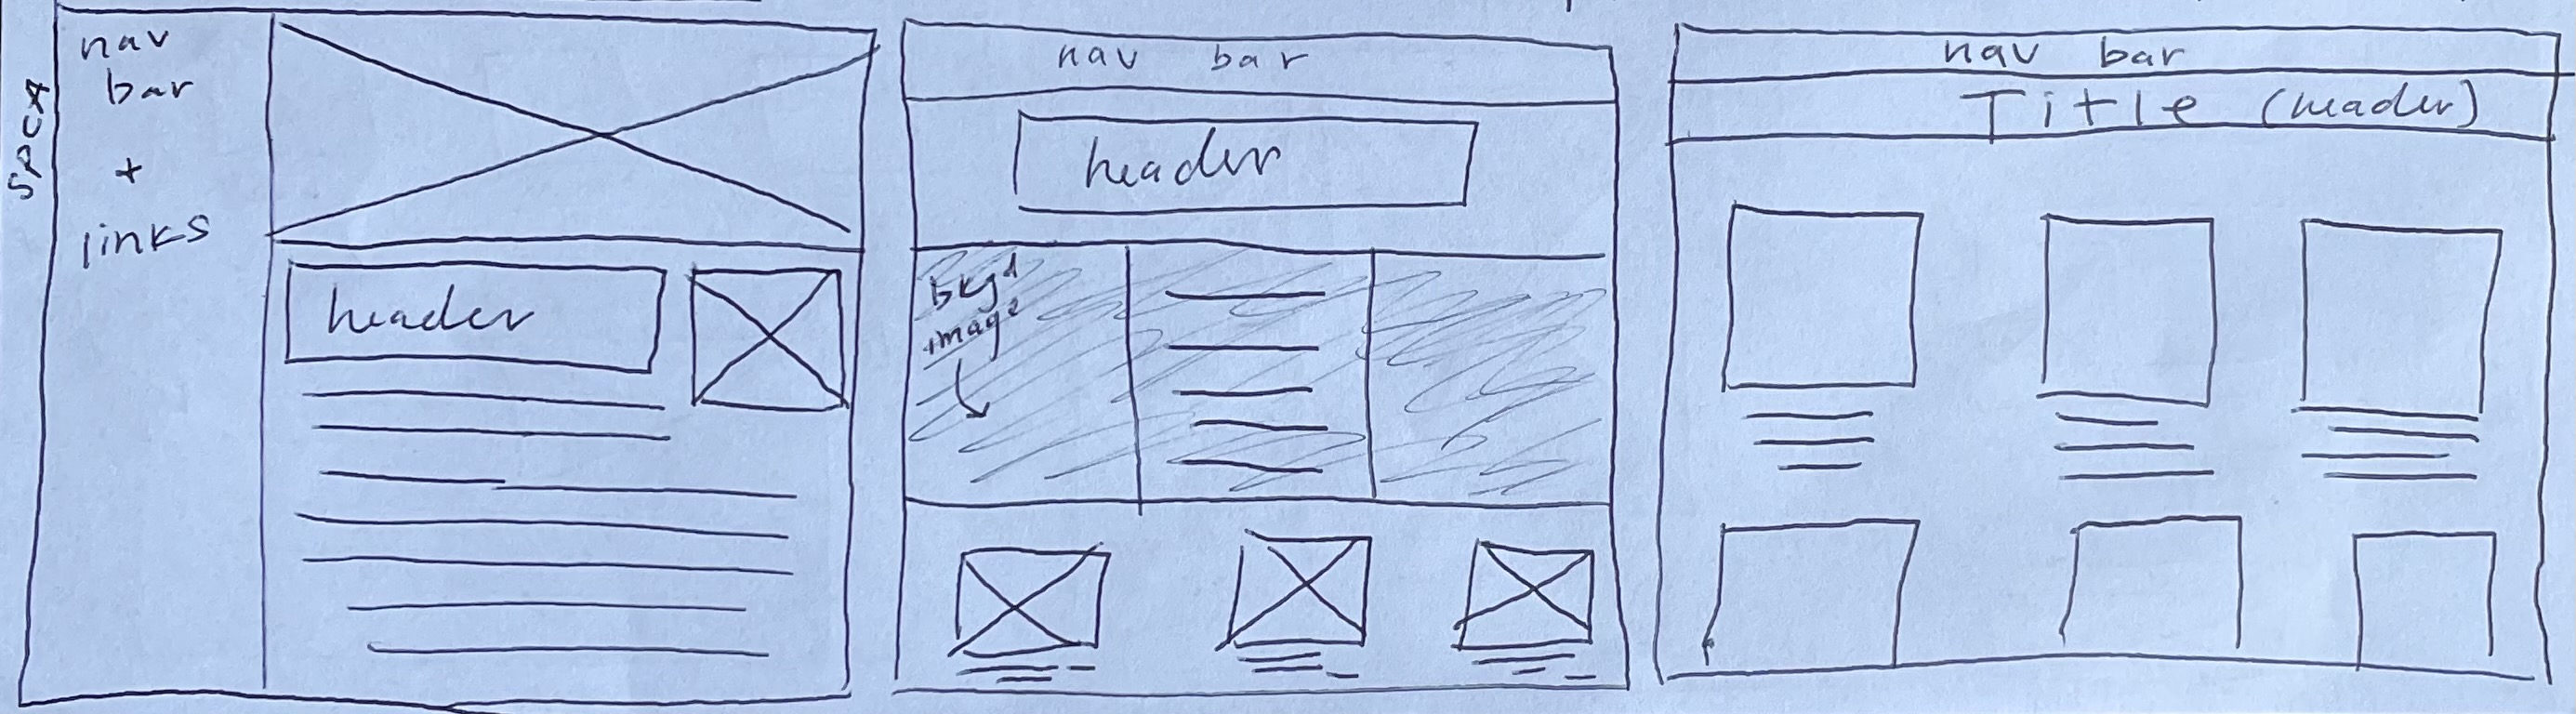 nav
bar
+
links
header
nav bar
header
bkgd
image
nav bar
Title (header)